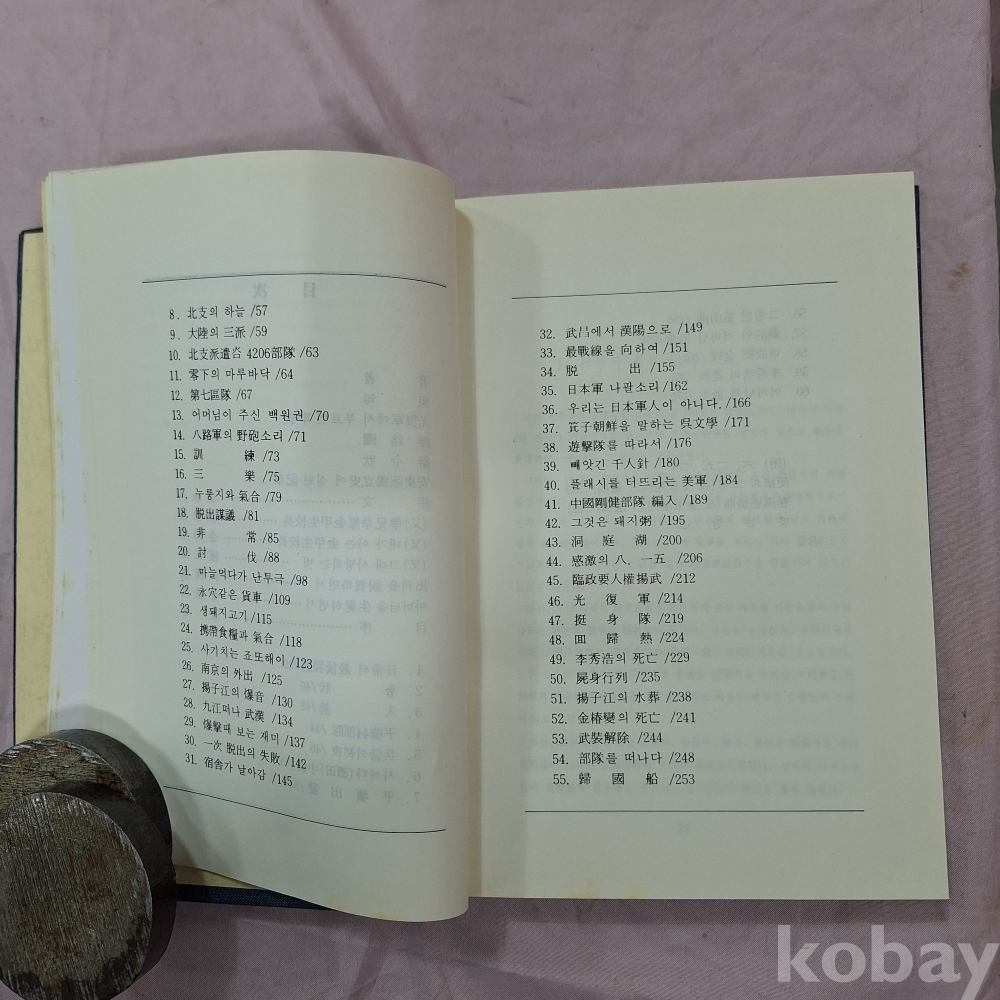 8. 北支의 하늘 /57
9. 大陸의 三派 /59
10. 北支派遣呇 4206部隊 /63
11. 零下의 마루바닥 /64
12. 第七區隊 /67
13. 어머님이 주신 백원권 /70
14. 八路軍의 野砲소리 /71
15. 訓 練 /73
16. 三 樂 /75
17. 누룽지와 氣合 /79
18. 脱出謀議 /81
19. 非 常 /85
20. 討 伐 /88
21. 마늘먹다가 난투극 /98
22. 氷穴같은 貨車 /109
23. 생돼지고기 /115
24. 携帶食糧과 氣合 /118
25. 사기치는 죠또해이 /123
26. 南京의 外出 /125
27. 揚子江의 爆音 /130
28. 九江떠나 武漢 /134
29. 爆擊때 보는 재미 /137
30. 一次 脱出의 失敗 /142
31. 宿舍가 날아감 /145
32. 武昌에서 漢陽으로 /149
33. 最戰線을 向하여 /151
34. 脱 出 /155
35. 日本軍 나팔소리 /162
36. 우리는 日本軍人이 아니다. /166
37. 箕子朝鮮을 말하는 呉文學 /171
38. 遊擊隊를 따라서 /176
39. 빼앗긴 千人針 /180
40. 플래시를 터뜨리는 美軍 /184
41. 中國剛健部隊 編入 /189
42. 그것은 돼지粥 /195
43. 洞 庭 湖 /200
44. 感激의 八. 一五 /206
45. 臨政要人權揚武 /212
46. 光 復 軍 /214
47. 挺 身 隊 /219
48. 囬 歸 熱 /224
49. 李秀浩의 死亡 /229
50. 屍身行列 /235
51. 揚子江의 水葬 /238
52. 金椿變의 死亡 /241
53. 武裝解除 /244
54. 部隊를 떠나다 /248
55. 歸 國 船 /253
kobay